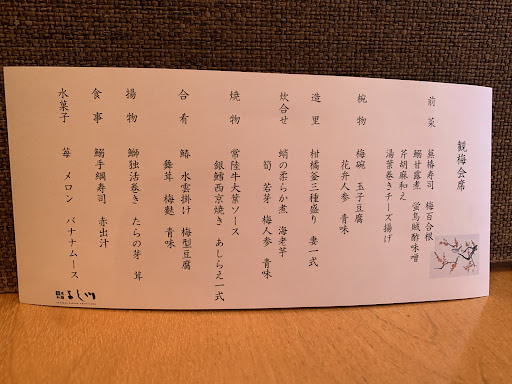 観梅会席
前菜　蕪椿寿司　梅百合根
鰯甘露煮　蛍烏賊酢味噌
芹胡麻和え
湯葉巻きチーズ揚げ
椀物　梅椀　玉子豆腐
花弁人参　青味
造里　柑橘釜三種盛り　妻一式
炊合せ　蛸の柔らか煮　海老芋
筍　若芽　梅人参　青味
焼物　常陸牛大葉ソース
銀鱈西京焼き　あしらえ一式
合肴　鰆　水雲掛け　梅型豆腐
舞茸　梅麩　青味
揚物　鰤独活巻き　たらの芽　茸
食事　鰯手綱寿司　赤出汁
水菓子　苺　メロン　バナナムース